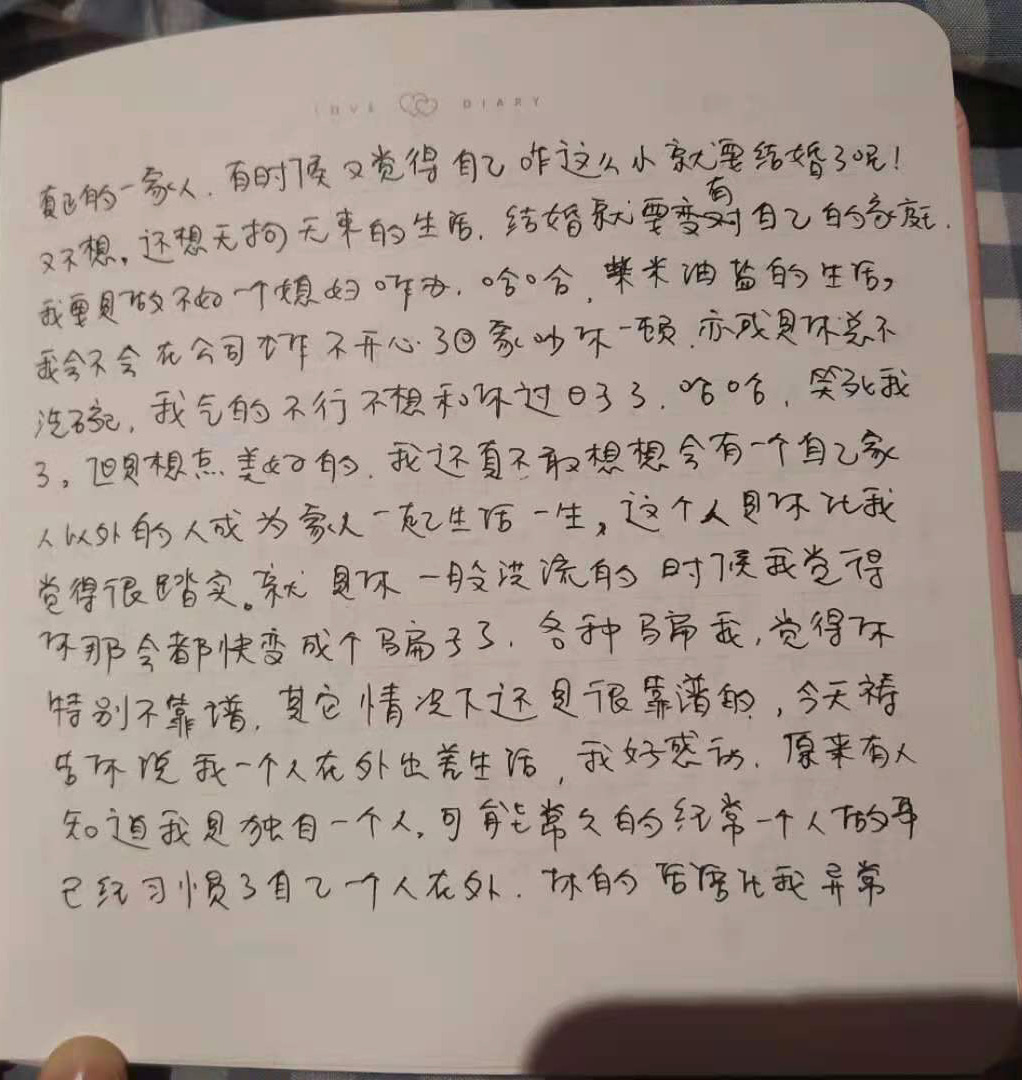 LOVE DIARY
真正的一家人.有时候又觉得自己咋这么小就要结婚了呢!
又不想,还想无拘无束的生活.结婚就要变有对自己的家庭.
我要是做不好一个媳妇咋办.哈哈,柴米油盐的生活,
我会不会在公司工作不开心了回家吵你一顿.亦或是你总不
洗碗,我气的不行不想和你过日子了.哈哈,笑死我
了,但是想点美好的.我还真不敢想想会有一个自己家
人以外的人成为家人一起生活一生,这个人是你让我
觉得很踏实。就是你一般没流的时候我觉得
你那会都快变成个骗子了.各种骗我,觉得你
特别不靠谱,其它情况下还是很靠谱的,今天祷
告你说我一个人在外出差生活,我好感动.原来有人
知道我是独自一个人,可能常久的经常一个人做事
已经习惯了自己一个人在外.你的话语让我异常